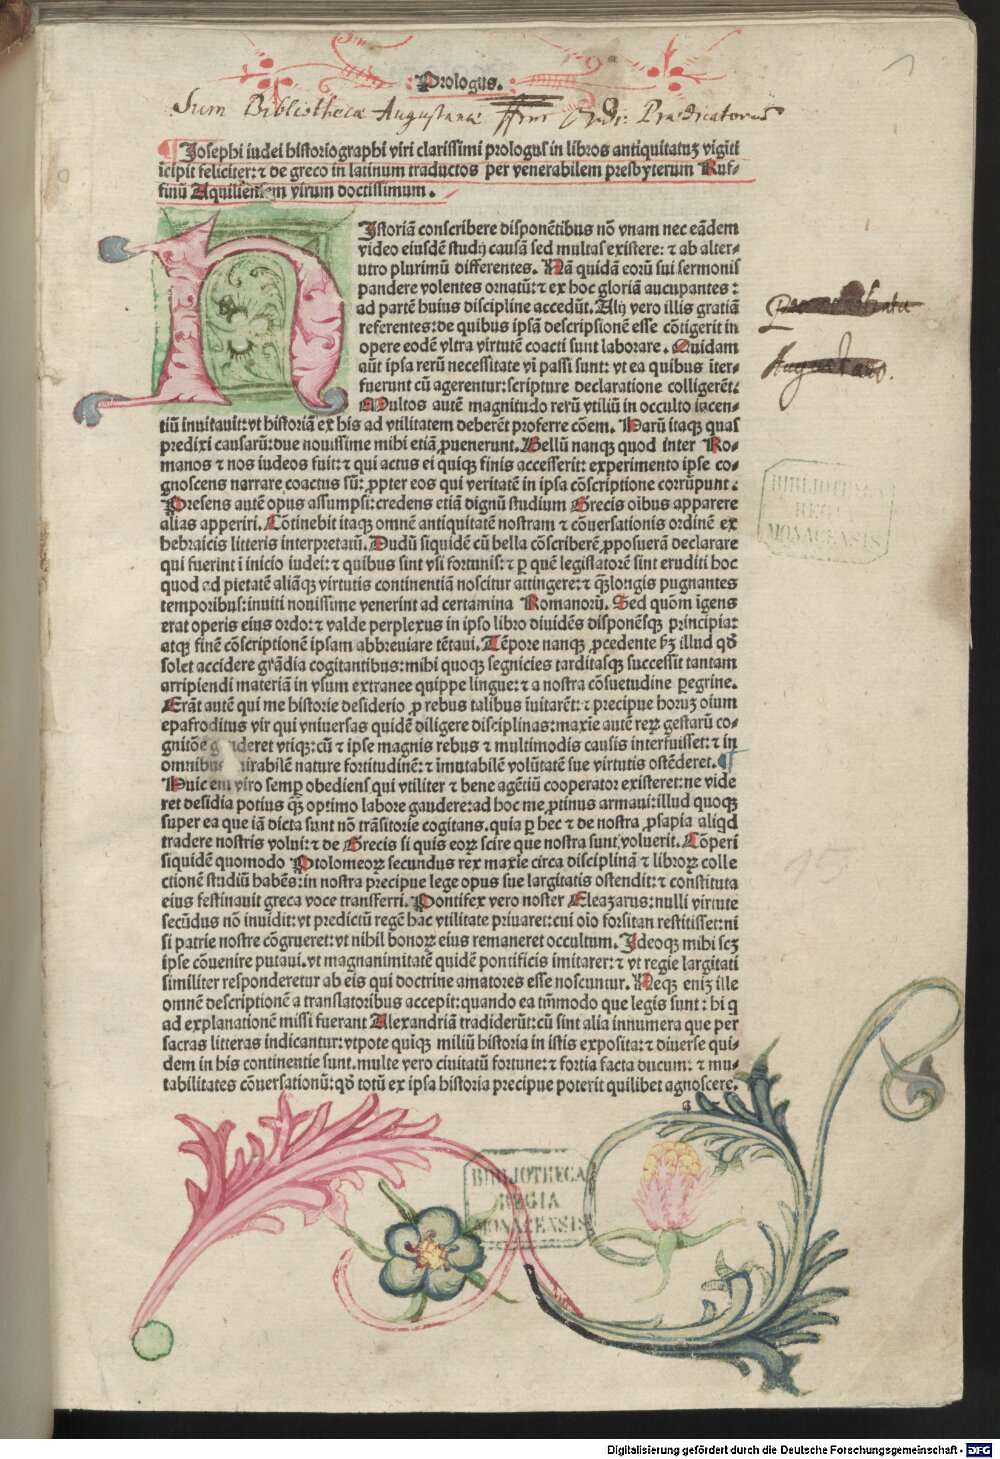 Prologus.
Sum Bibliothecæ Augustanæ ffrum Ordi: Prædicatorum
1
Josephi iudei historiographi viri clarissimi prologus in libros antiquitatuʒ vigiti
icipit feliciter: ⁊ de greco in latinum traductos per venerabilem presbyterum Ruf⸗
finū Aquilensem virum doctissimum.
HIstoriā conscribere disponētibus nō vnam nec eādem
video eiusdē studij causā sed multas existere: ⁊ ab alter⸗
utro plurimū differentes. Nā quidā eorū sui sermonis
pandere volentes ornatū: ⁊ ex hoc gloriā aucupantes:
ad partē huius discipline accedūt. Alij vero illis gratiā
referentes: de quibus ipsā descriptionē esse cōtigerit in
opere eodē vltra virtutē coacti sunt laborare. Quidam
aūt ipsa rerū necessitate vi passi sunt: vt ea quibus iter⸗
fuerunt cū agerentur: scripture declaratione colligerēt.
Multos autē magnitudo rerū vtiliū in occulto iacen⸗
tiū inuitauit: vt historiā ex his ad vtilitatem deberēt proferre cōem. Harū itaqꝫ quas
predixi causarū: due nouissime mihi etiā ꝓuenerunt. Bellū nanqꝫ quod inter Ro⸗
manos ⁊ nos iudeos fuit: ⁊ qui actus ei quiqꝫ finis accesserit: experimento ipse co⸗
gnoscens narrare coactus sū: ꝓpter eos qui veritatē in ipsa cōscriptione corrūpunt.
Presens autē opus assumpsi: credens etiā dignū studium Grecis oībus apparere
alias apperiri. Cōtinebit itaqꝫ omnē antiquitatē nostram ⁊ cōuersationis ordinē ex
hebraicis litteris interpretatū. Dudū siquidē cū bella cōscriberē ꝓposuerā declarare
qui fuerint ī inicio iudei: ⁊ quibus sint vsi fortunis: ⁊ ꝑ quē legislatorē sint eruditi hoc
quod ad pietatē aliāqꝫ virtutis continentiā noscitur attingere: ⁊ qꝫ longis pugnantes
temporibus: inuiti nouissime venerint ad certamina Romanorū. Sed quōm īgens
erat operis eius ordo: ⁊ valde perplexus in ipso libro diuidēs disponēsqꝫ principia:
atqꝫ finē cōscriptionē ipsam abbreuiare tētaui. Tēpore nanqꝫ ꝓcedente sꝫ illud qd̄
solet accidere grādia cogitantibus: mihi quoqꝫ segnicies tarditasqꝫ successit tantam
arripiendi materiā in vsum extranee quippe lingue: ⁊ a nostra cōsuetudine ꝑegrine.
Erāt autē qui me historie desiderio ꝓ rebus talibus īuitarēt: ⁊ precipue horuʒ oium
epafroditus vir qui vniuersas quidē diligere disciplinas: maxīe autē reꝝ gestarū co⸗
gnitōe gauderet vtiqꝫ: cū ⁊ ipse magnis rebus ⁊ multimodis causis interfuisset: ⁊ in
omnibus mirabilē nature fortitudinē: ⁊ īmutabilē volūtatē sue virtutis ostēderet.
Huic em viro semꝑ obediens qui vtiliter ⁊ bene agētiū cooperator existeret: ne vide
ret desidia potius qꝫ optimo labore gaudere: ad hoc me ꝓtinus armaui: illud quoqꝫ
super ea que iā dicta sunt nō trāsitorie cogitans. quia ꝑ hec ⁊ de nostra ꝓsapia aliqd
tradere nostris volui: ⁊ de Grecis si quis eoꝝ scire que nostra sunt voluerit. Cōperi
siquidē quomodo Ptolomeoꝝ secundus rex maxīe circa disciplinā ⁊ libroꝝ colle
ctionē studiū habēs: in nostra precipue lege opus sue largitatis ostendit: ⁊ constituta
eius festinauit greca voce transferri. Pontifex vero noster Eleazarus: nulli virtute
secūdus nō inuidit: vt predictū regē hac vtilitate priuaret: cui oīo forsitan restitisset: ni
si patrie nostre cōgrueret: vt nihil bonoꝝ eius remaneret occultum. Ideoqꝫ mihi scʒ
ipse cōuenire putaui. vt magnanimitatē quidē pontificis imitarer: ⁊ vt regie largitati
similiter responderetur ab eis qui doctrine amatores esse noscuntur. Neqꝫ eniʒ ille
omnē descriptionē a translatoribus accepit: quando ea tm̄modo que legis sunt: hi q
ad explanationē missi fuerant Alexandriā tradiderūt: cū sint alia innumera que per
sacras litteras indicantur: vtpote quiqꝫ miliū historia in istis exposita: ⁊ diuerse qui⸗
dem in his continentie sunt. multe vero ciuitatū fortune: ⁊ fortia facta ducum: ⁊ mu⸗
tabilitates cōuersationū: qd̄ totū ex ipsa historia precipue poterit quilibet agnoscere.
a
BIBLIOTHECA
REGIA
MONACENSIS
15
BIBLIOTHECA
REGIA
MONACENSIS
Digitalisierung gefördert durch die Deutsche Forschungsgemeinschaft - DFG